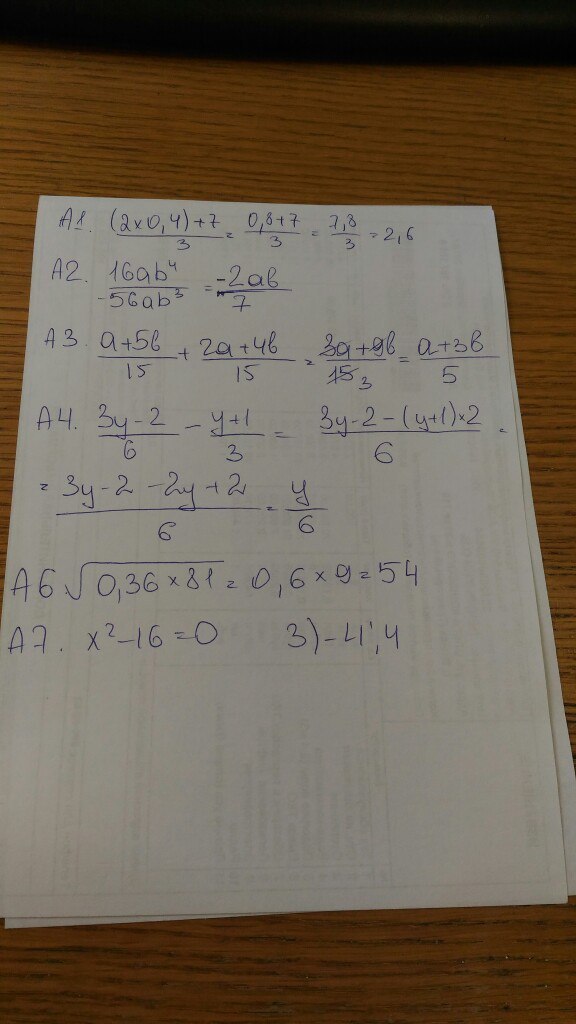 A1. (2×0,4)+7/3 = 0,8+7/3 = 7,8/3 = 2,6
A2. 16ab⁴/-56ab³ = -2ab/7
A3. a+5b/15 + 2a+4b/15 = 3a+9b/15 3 = a+3b/5
A4. 3y-2/6 - y+1/3 = 3y-2-(y+1)×2/6 =
= 3y-2-2y+2/6 = y/6
A6 √0,36×81 = 0,6×9=54
A7. x²-16=0 3)-4;4